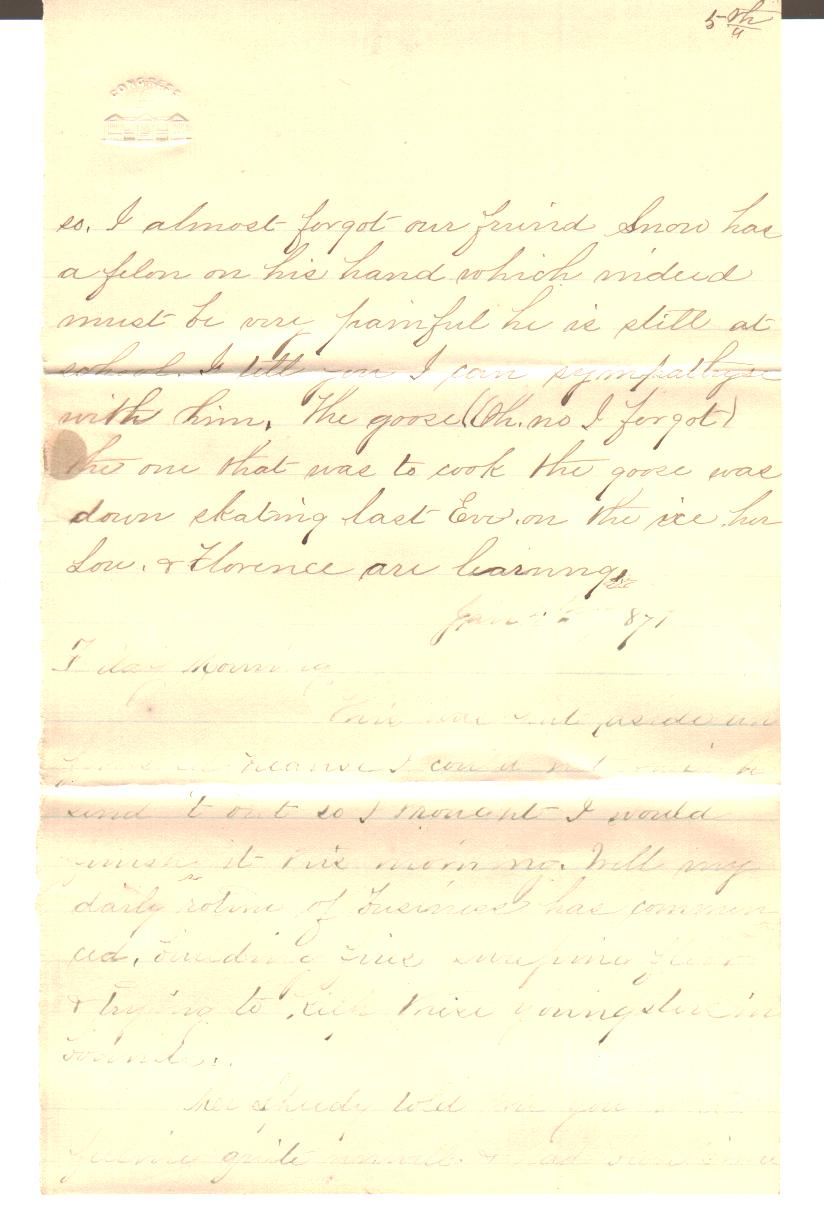 5th
CONGRESS
so. I almost forgot our friend Snow has
a felon on his hand which indeed
must be very painful he is still at
school. I tell you I can sympathyse
with him. The goose (Oh. no I forgot)
the one that was to cook the goose was
down skating last Eve. on the ice. her
Lou. & Florence are learning
Jan 187
Morning
This was put aside
because I could not
send it out so I thought I would
finish it this morning. Well my
daily rotine of business has commen
ced. Building fires sweeping floor
& trying to keep these youngsters in
bounds.
Mr Speedy told me you
feeling quite unwell. & had been